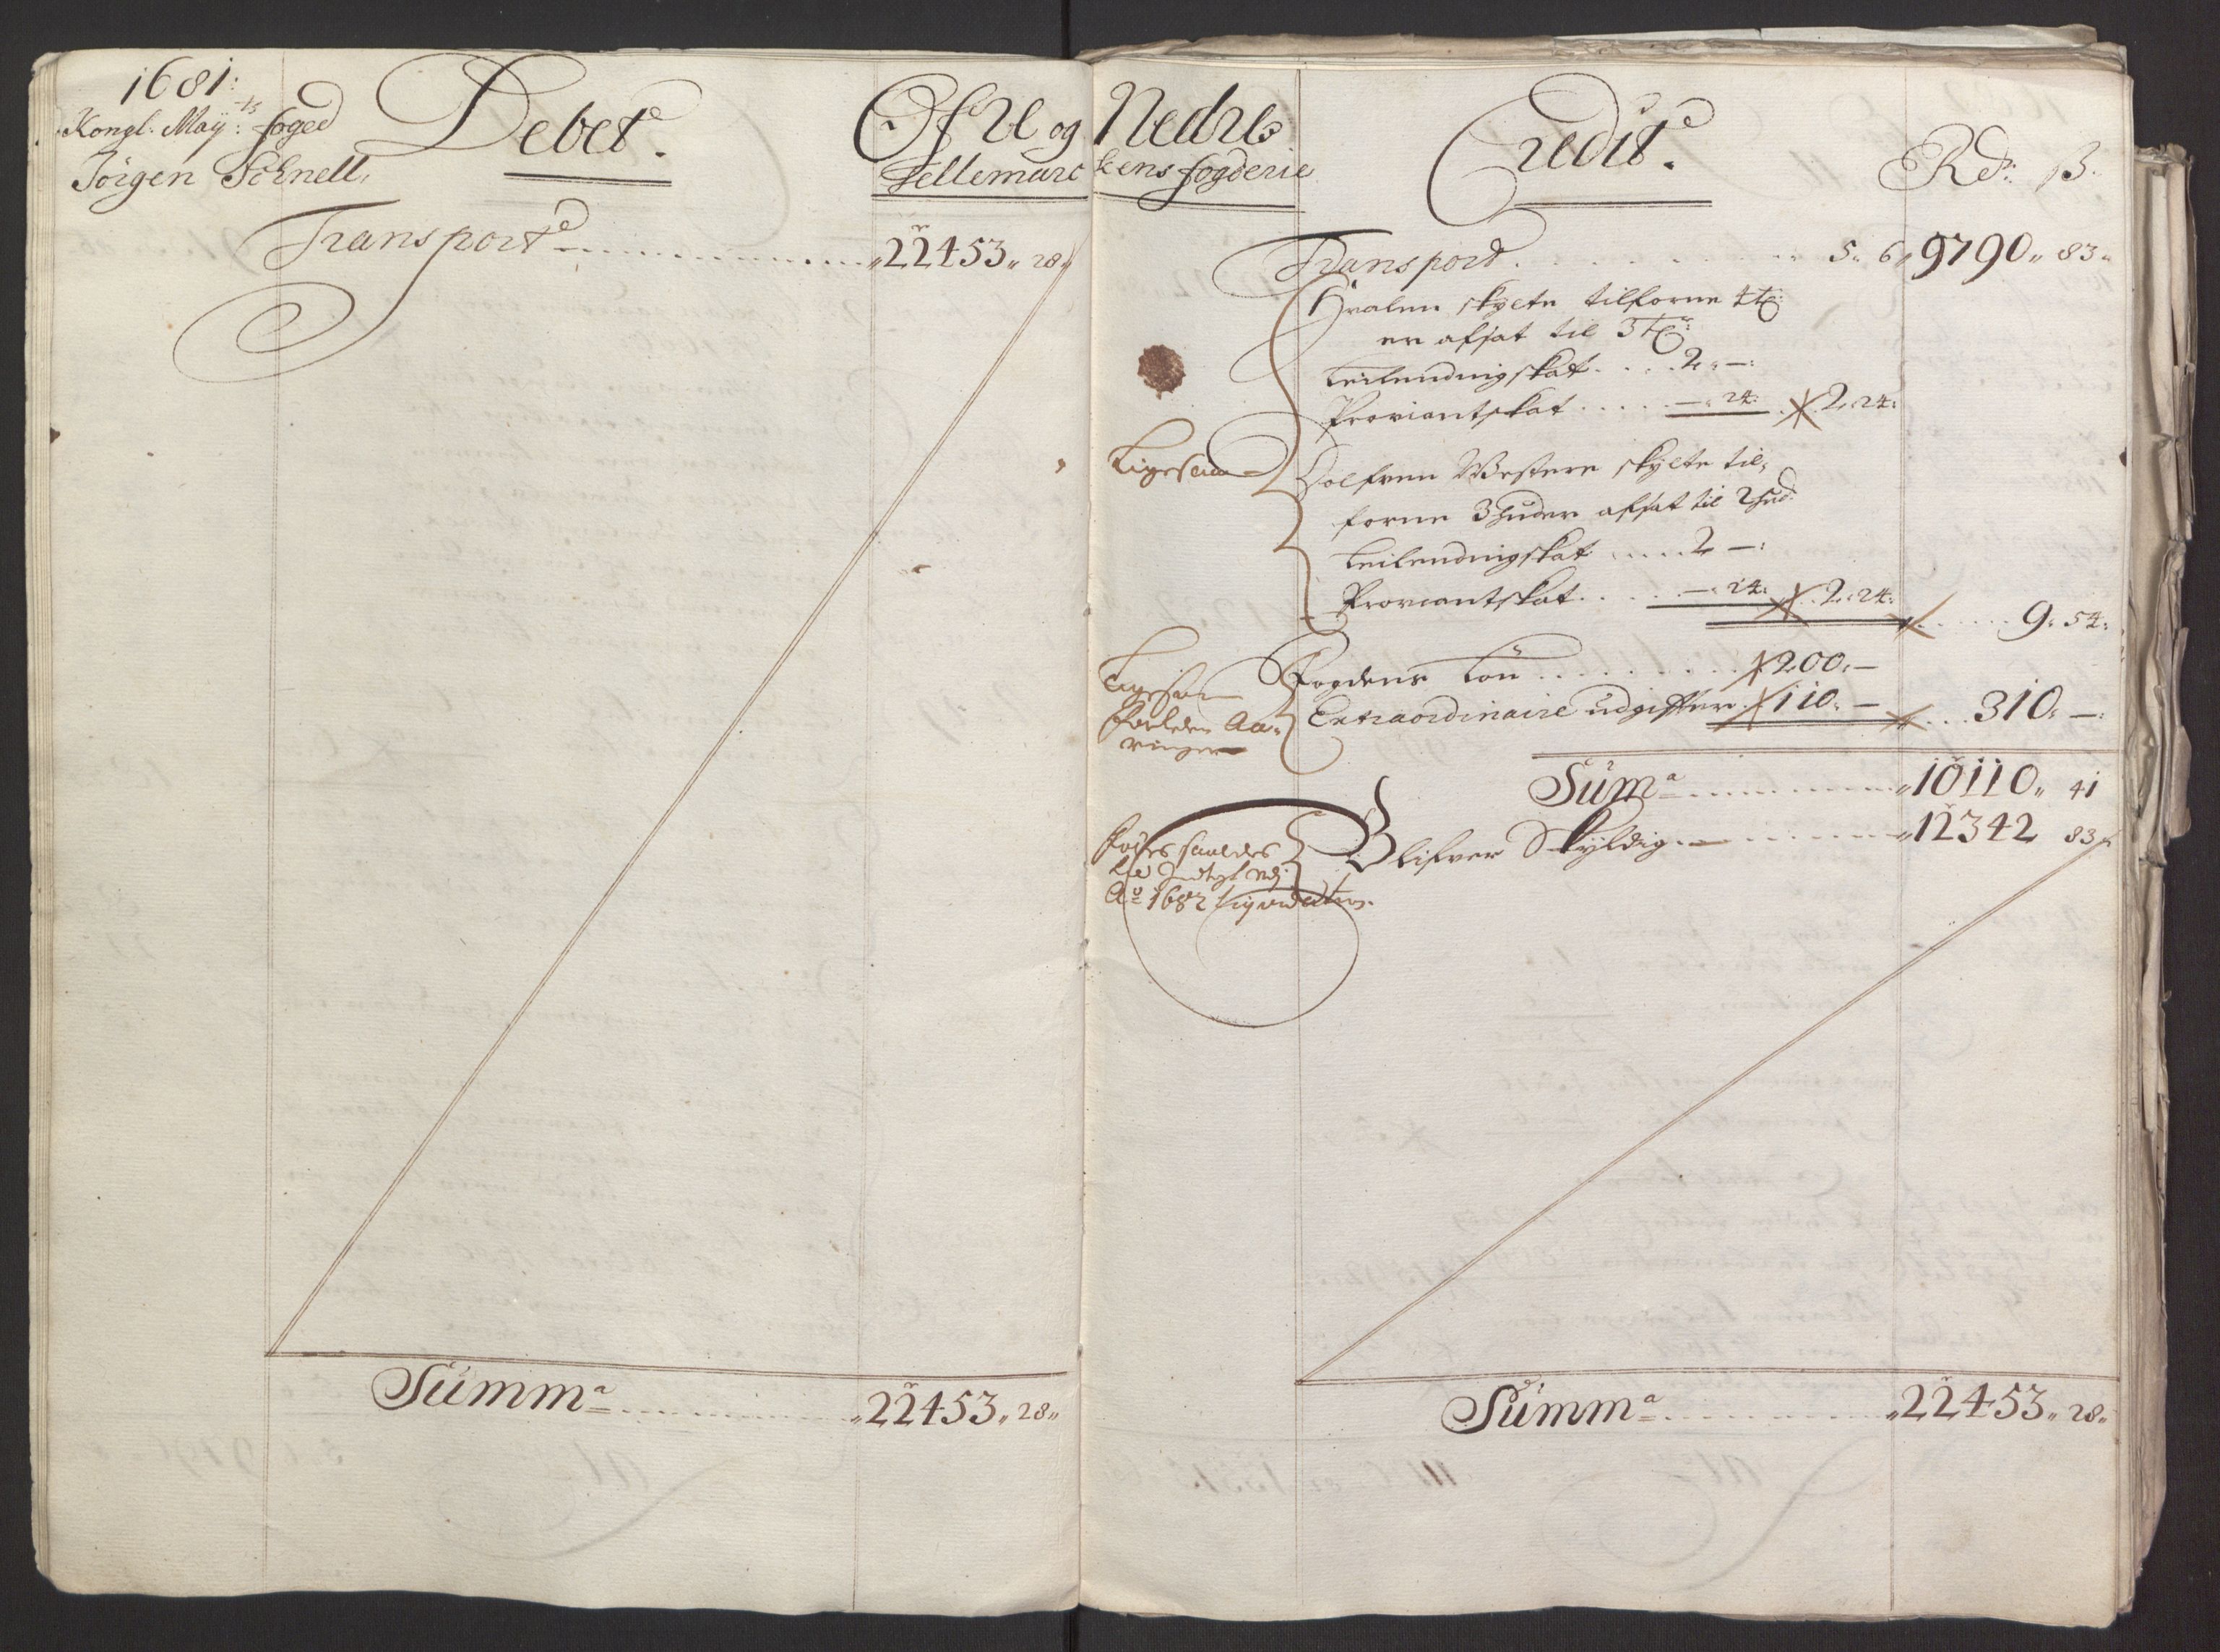 1681:
Kongl. Maÿ:ts foged
Jörgen Schnell.
Debet.
Öfre og Nedre
Tellemarckens fogderie
Transport 22453,, 28,,
Summa 22453,, 28,,
Credit.
Rd: ß.
Transport 5,, 6,, 9790,, 83,,
skylte tilforne 4 t
er afsat til 3 t
Leilendingskat 2,, -:
Proviantskat -,, 24: 2,, 24:
Ligesaa
Westere skylte til-
forne 3 huder afsat til 2 hud:
Leilendingskat 2 -:
Proviantskat -,, 24: 2,, 24:
9: 54:
Ligesaa
Fogdens Lön 200,, -
Extraordinaire udgiffter 110,, -
310,, -:
Summa 10110,, 41
Blifver Skÿldig 12342 83
Ao 1682
Summa 22453,, 28,,